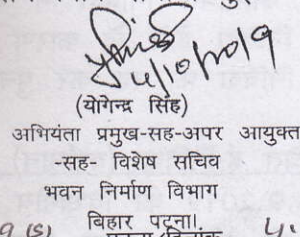 4/10/2019
(योगेन्द्र सिंह)
अभियंता प्रमुख-सह-अपर आयुक्त
-सह- विशेष सचिव
भवन निर्माण विभाग
बिहार पटना।